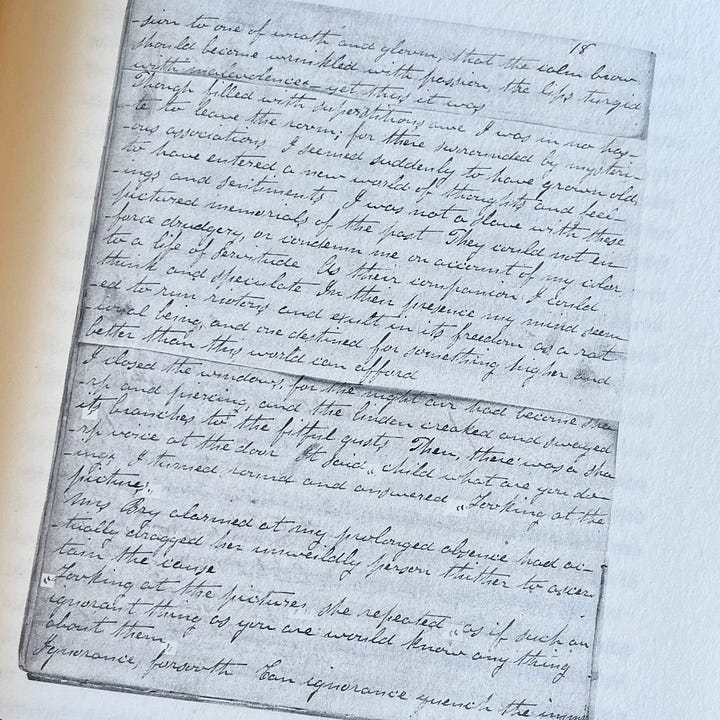 18
-sion to one of wrath and gloom, that the calm brow
should become wrinkled with passion, the lips turgid
with malevolence - yet thus it was
Though filled with superstitious awe I was in no has-
-te to leave the room; for there surrounded by mysteri-
-ous associations I seemed suddenly to have grown old,
to have entered a new world of thoughts and feel-
-ings and sentiments. I was not a slave with these
pictured memorials of the past They could not en
-force drudgery, or condemn me on account of my color
to a life of servitude. As their companion I could
think and speculate In their presence my mind seem
-ed to run riotous and exult in its freedom as a rat
-ional being, and one destined for something higher and
better than this world can afford
I closed the windows, for the night air had become sha
-rp and piercing, and the linden creaked and swayed
its branches to the fitful gusts Then, there was a sha
-rp voice at the door It said „child what are you do-
-ing„ I turned round and answered „Looking at the
pictures„
Mrs Bry alarmed at my prolonged absence had ac-
-tually dragged her unweildly person thither to ascer
tain the cause
„Looking at the pictures„ she repeated „as if such an
ignorant thing as you are would know any thing
about them„
Ignorance, forsooth Can ignorance quench the